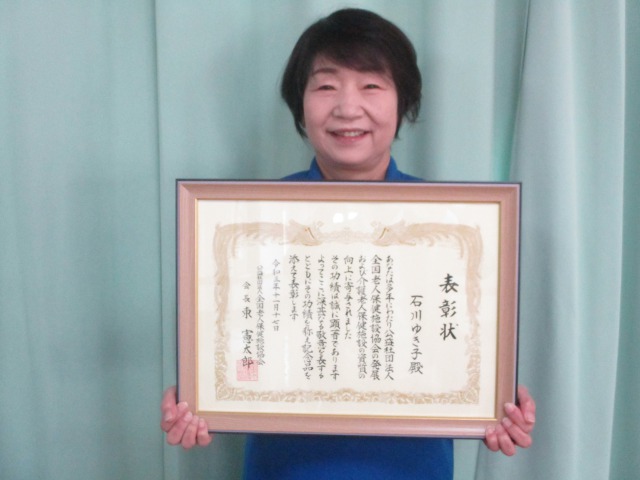 表彰状
石川ゆき子殿
あなたは多年にわたり公益社団法人
全国老人保健施設協会の発展
および介護老人保健施設の資質の
向上に寄与されました
その功績は誠に顕著であります
よってここに深甚なる敬意を表する
とともにその功績を称え記念品を
添えて表彰します
令和三年十一月十七日
公益社団法人全国老人保健施設協会
会長 東 憲太郎